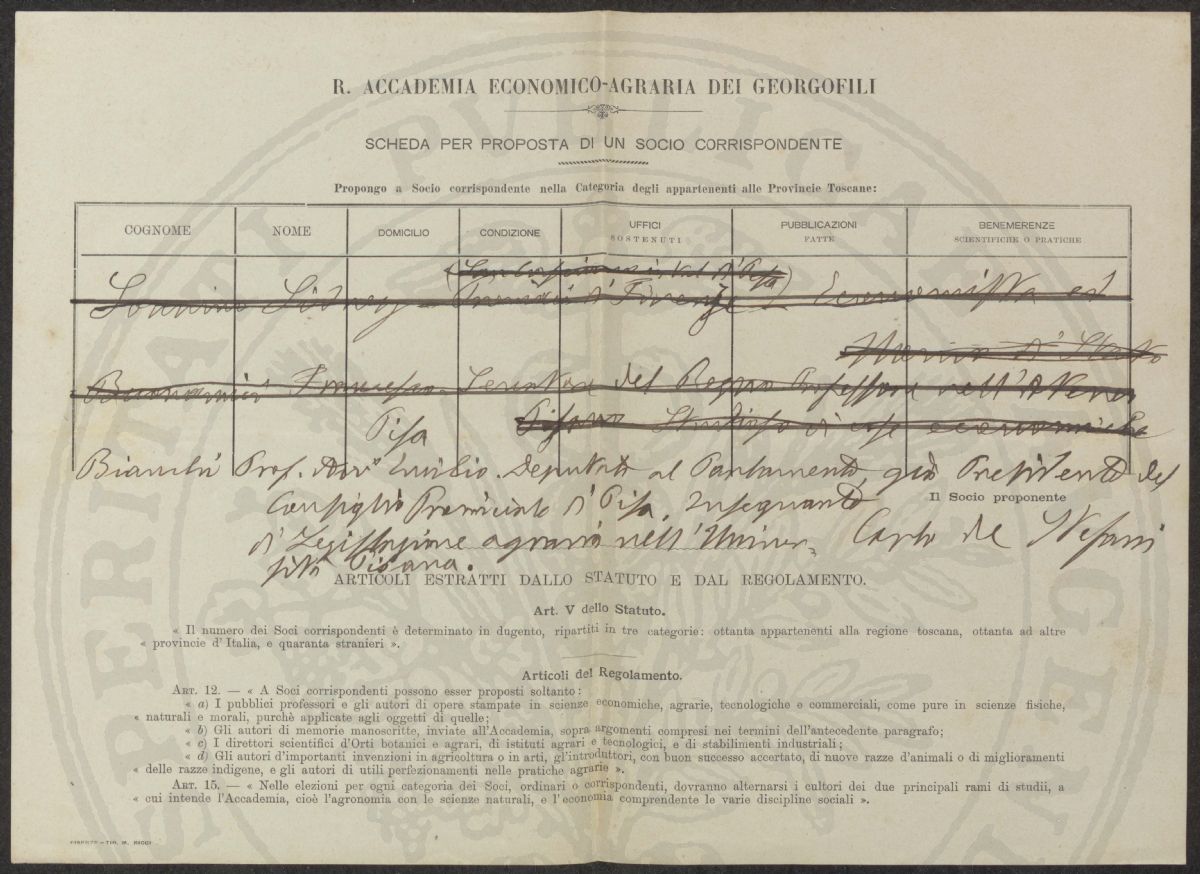 R. ACCADEMIA ECONOMICO-AGRARIA DEI GEORGOFILI
SCHEDA PER PROPOSTA DI UN SOCIO CORRISPONDENTE
Propongo a Socio corrispondente nella Categoria degli appartenenti alle Provincie Toscane:
COGNOME NOME DOMICILIO CONDIZIONE UFFICI SOSTENUTI PUBBLICAZIONI FATTE BENEMERENZE SCIENTIFICHE O PRATICHE
Sonnino Sidney di Firenze Economista ed
Uomo di Stato
Buonamici Francesco Senatore del Regno Professore nell'Ateneo
Pisano Studioso di cose economiche
Pisa
Bianchi Prof. Avv.o Emilio Deputato al Parlamento, già Presidente del
Consiglio Provinciale di Pisa. Insegnante
Il Socio proponente
di Legislazione agraria nell'Univer-
Carlo de Stefani
sità Pisana.
ARTICOLI ESTRATTI DALLO STATUTO E DAL REGOLAMENTO.
Art. V dello Statuto.
« Il numero dei Soci corrispondenti è determinato in dugento, ripartiti in tre categorie: ottanta appartenenti alla regione toscana, ottanta ad altre
« provincie d'Italia, e quaranta stranieri ».
Articoli del Regolamento.
ART. 12. — « A Soci corrispondenti possono esser proposti soltanto:
« a) I pubblici professori e gli autori di opere stampate in scienze economiche, agrarie, tecnologiche e commerciali, come pure in scienze fisiche,
« naturali e morali, purchè applicate agli oggetti di quelle;
« b) Gli autori di memorie manoscritte, inviate all'Accademia, sopra argomenti compresi nei termini dell'antecedente paragrafo;
« c) I direttori scientifici d'Orti botanici e agrari, di istituti agrari e tecnologici, e di stabilimenti industriali;
« d) Gli autori d'importanti invenzioni in agricoltura o in arti, gl'introduttori, con buon successo accertato, di nuove razze d'animali o di miglioramenti
« delle razze indigene, e gli autori di utili perfezionamenti nelle pratiche agrarie ».
ART. 15. — « Nelle elezioni per ogni categoria dei Soci, ordinari o corrispondenti, dovranno alternarsi i cultori dei due principali rami di studii, a
« cui intende l'Accademia, cioè l'agronomia con le scienze naturali, e l'economia comprendente le varie discipline sociali ».
FIRENZE - TIP. M. RICCI